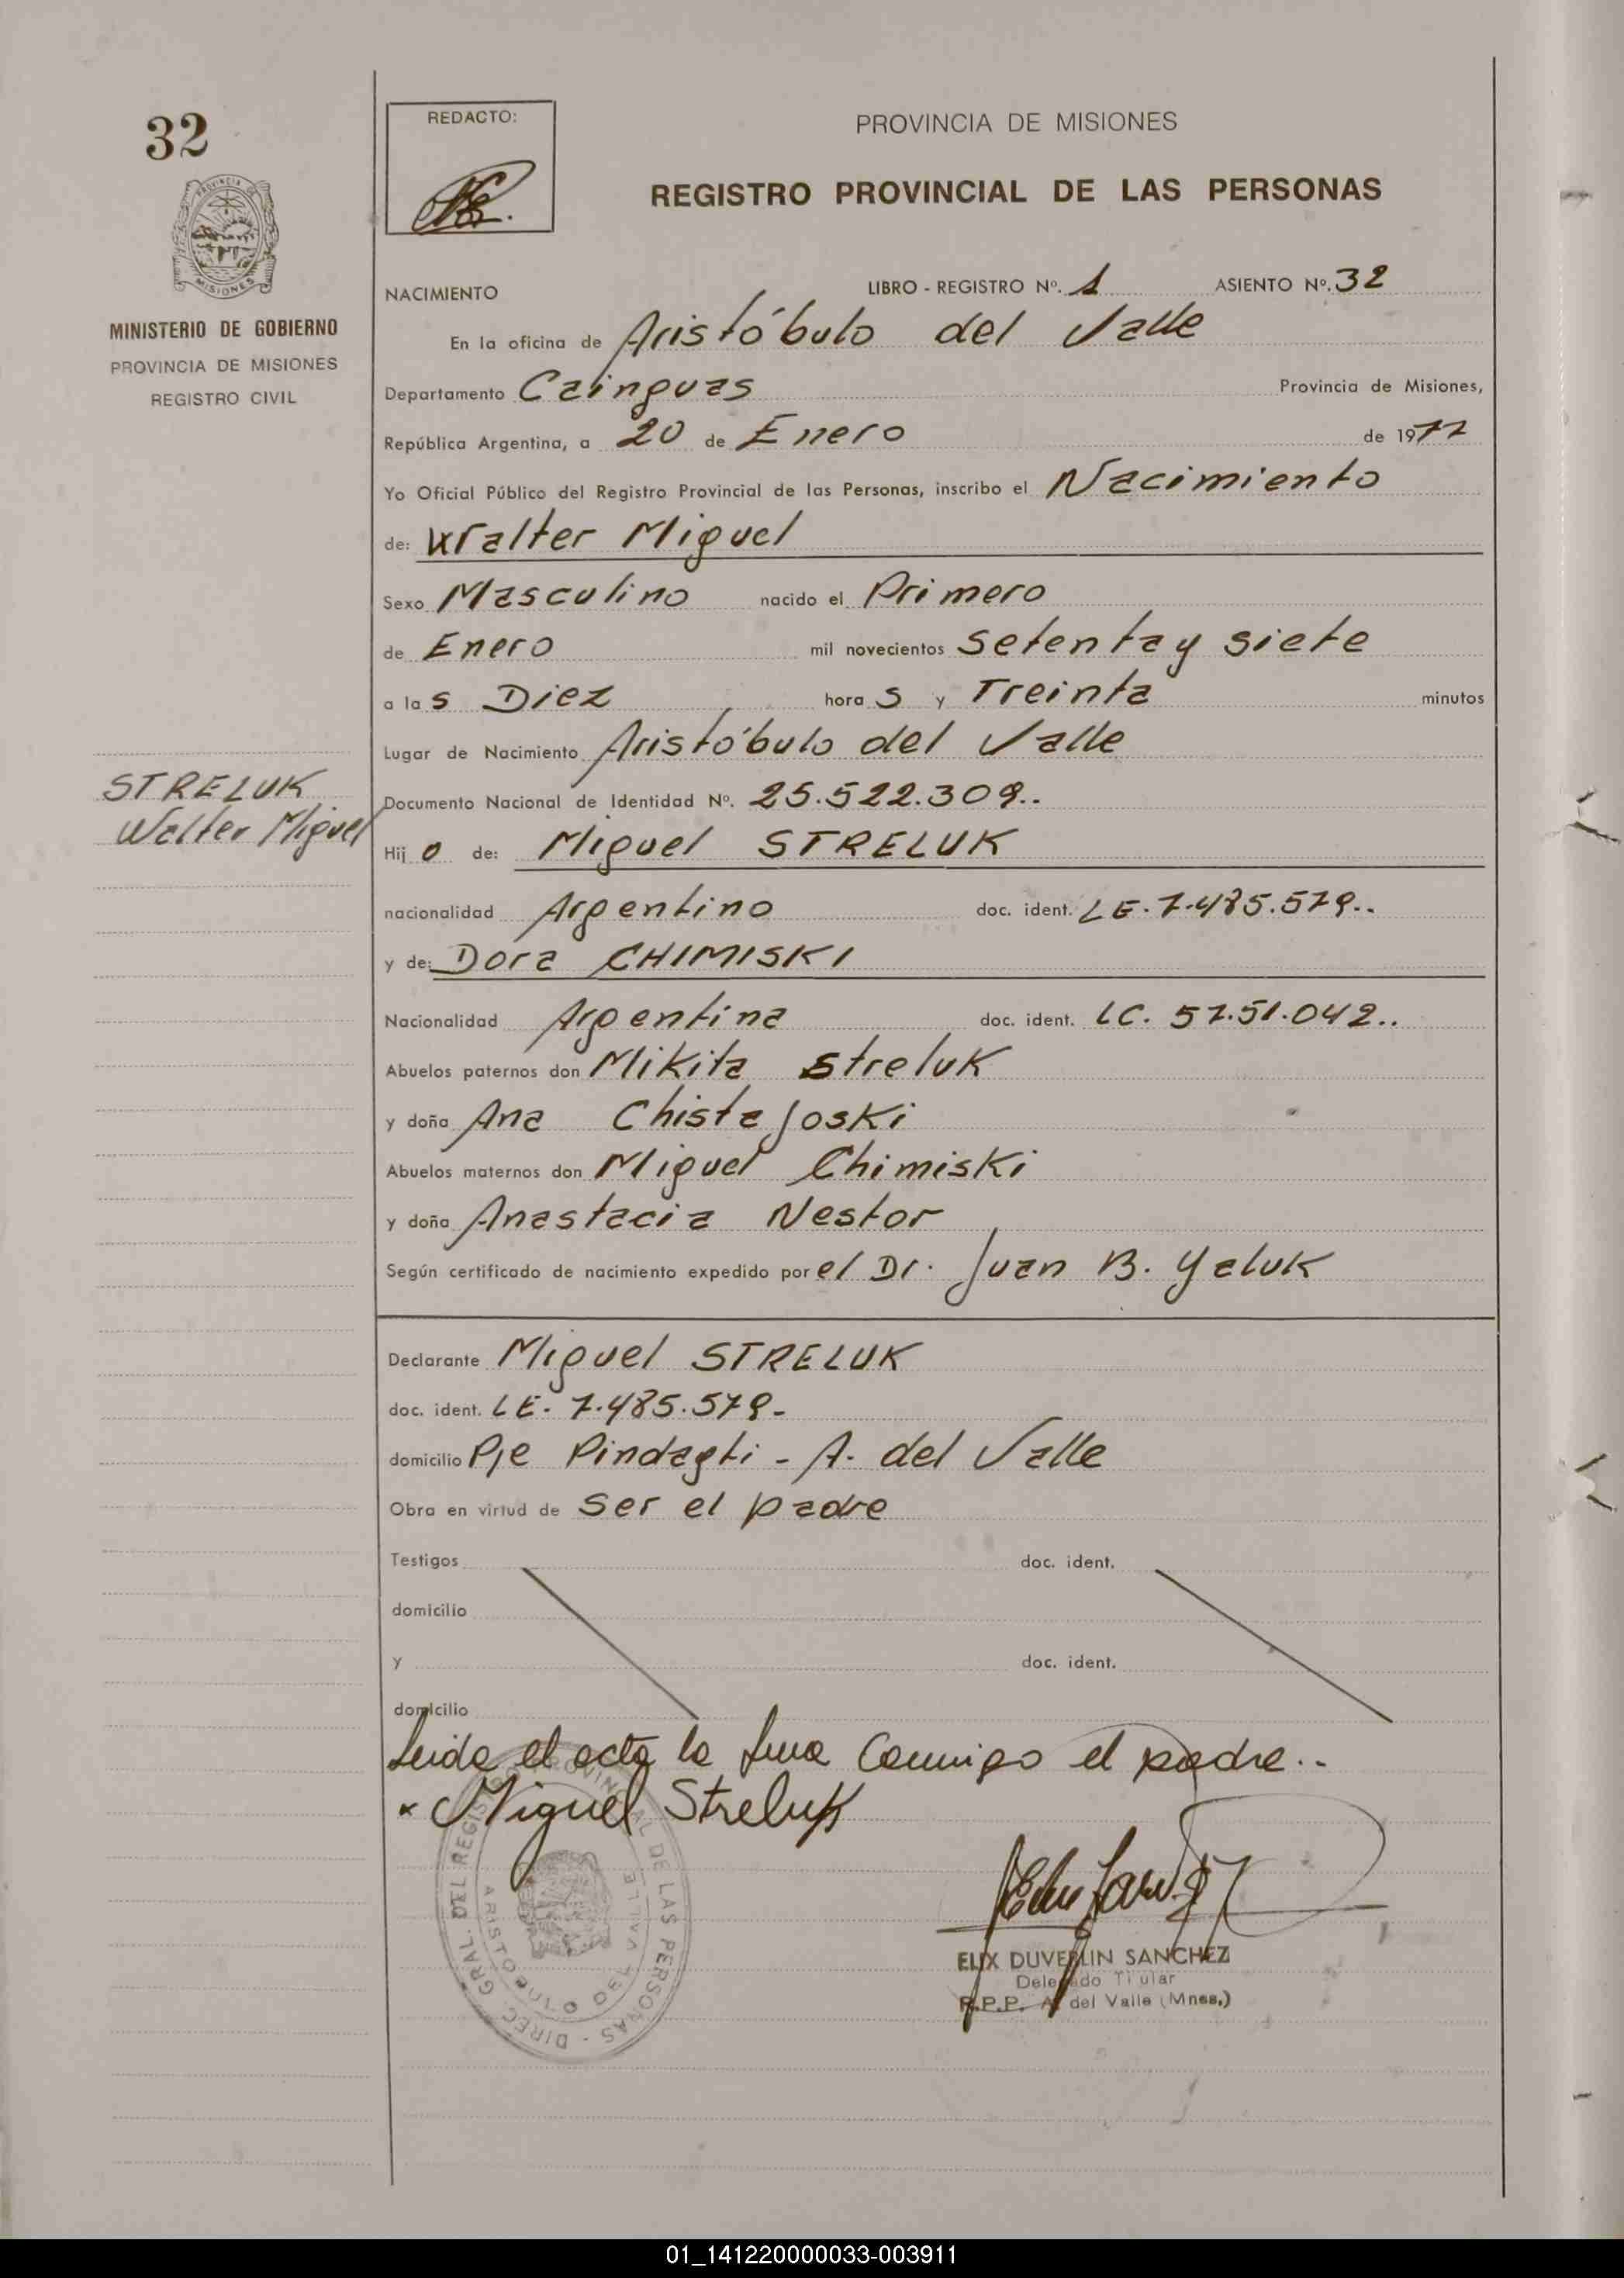 32
REDACTO:
PROVINCIA DE MISIONES
REGISTRO PROVINCIAL DE LAS PERSONAS
PROVINCIA DE
MISIONES
MINISTERIO DE GOBIERNO
PROVINCIA DE MISIONES
REGISTRO CIVIL
NACIMIENTO LIBRO - REGISTRO Nº. 1 ASIENTO Nº. 32
En la oficina de Aristóbulo del Valle
Departamento Cainguas Provincia de Misiones,
República Argentina, a 20 de Enero de 1977
Yo Oficial Público del Registro Provincial de las Personas, inscribo el Nacimiento
de: Walter Miguel
Sexo Masculino nacido el Primero
de Enero mil novecientos setenta y siete
a las Diez horas y Treinta minutos
Lugar de Nacimiento Aristóbulo del Valle
STRELUK
Walter Miguel
Documento Nacional de Identidad Nº. 25.522.309..
Hijo de: Miguel STRELUK
nacionalidad Argentino doc. ident. LE. 7.485.579..
y de: Dora CHIMISKI
Nacionalidad Argentina doc. ident. LC. 57.51.042..
Abuelos paternos don Mikita Streluk
y doña Ana Chistajoski
Abuelos maternos don Miguel Chimiski
y doña Anastacia Nestor
Según certificado de nacimiento expedido por el Dr. Juan B. Yaluk
Declarante Miguel STRELUK
doc. ident. LE. 7.485.579.-
domicilio Pje Pindayti - A. del Valle
Obra en virtud de ser el padre
Testigos doc. ident.
domicilio
y doc. ident.
domicilio
Leida el acta la firma Conmigo el padre..
x Miguel Streluk
DIREC. GRAL. DEL REGISTRO PROVINCIAL DE LAS PERSONAS -
ARISTOBULO DEL VALLE
ELIX DUVERLIN SANCHEZ
Delegado Titular
R.P.P. A. del Valle (Mnes.)
01_141220000033-003911